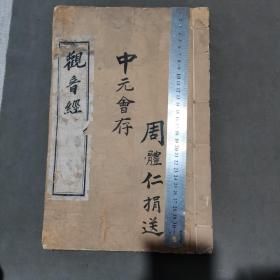 周體仁捐送
中元會存
觀音經